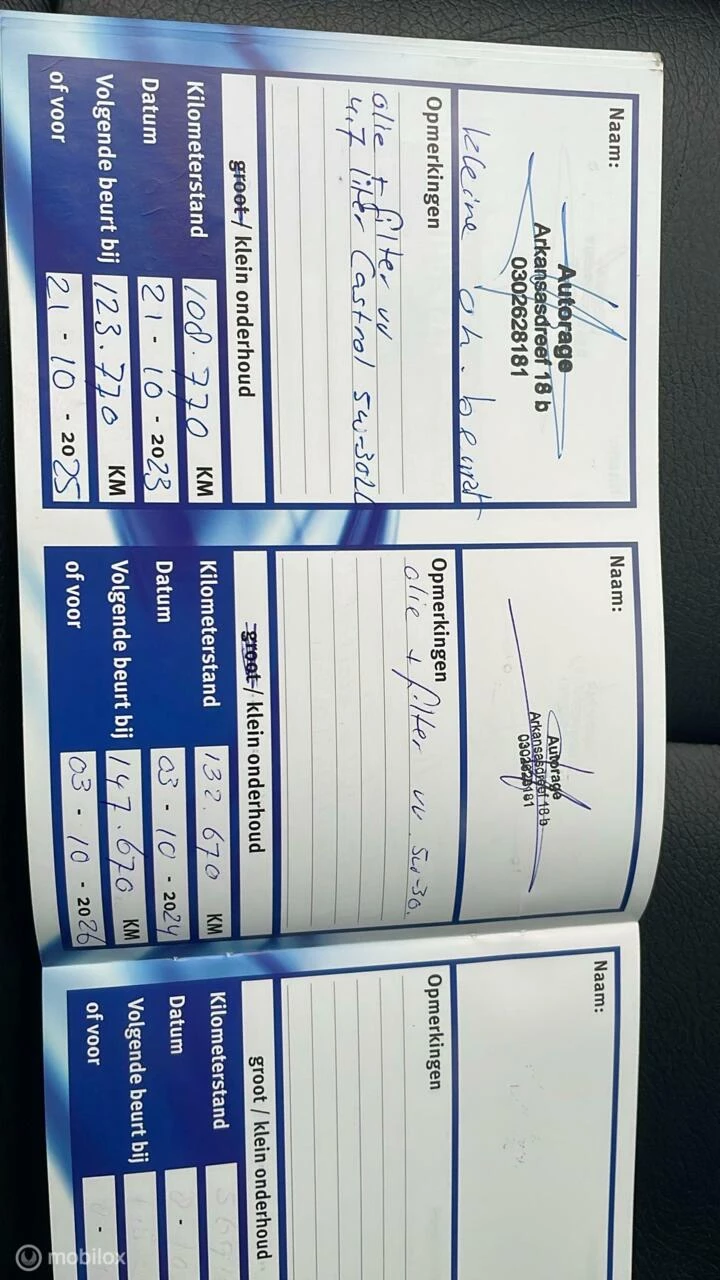 Naam:
Autorage
Arkansasdreef 18 b
0302628181
kleine oh. beurt
Opmerkingen
olie + filter vv
4,7 liter Castrol 5w-30LL
groot / klein onderhoud
Kilometerstand 108.770 KM
Datum 21 - 10 - 2023
Volgende beurt bij 123.770 KM
of voor 21 - 10 - 2025
Naam:
Autorage
Arkansasdreef 18 b
0302628181
Opmerkingen
olie + filter vv. 5w-30.
groot / klein onderhoud
Kilometerstand 132.670 KM
Datum 03 - 10 - 2024
Volgende beurt bij 147.670 KM
of voor 03 - 10 - 2026
Naam:
Opmerkingen
groot / klein onderhoud
Kilometerstand
Datum
Volgende beurt bij
of voor
mobilox